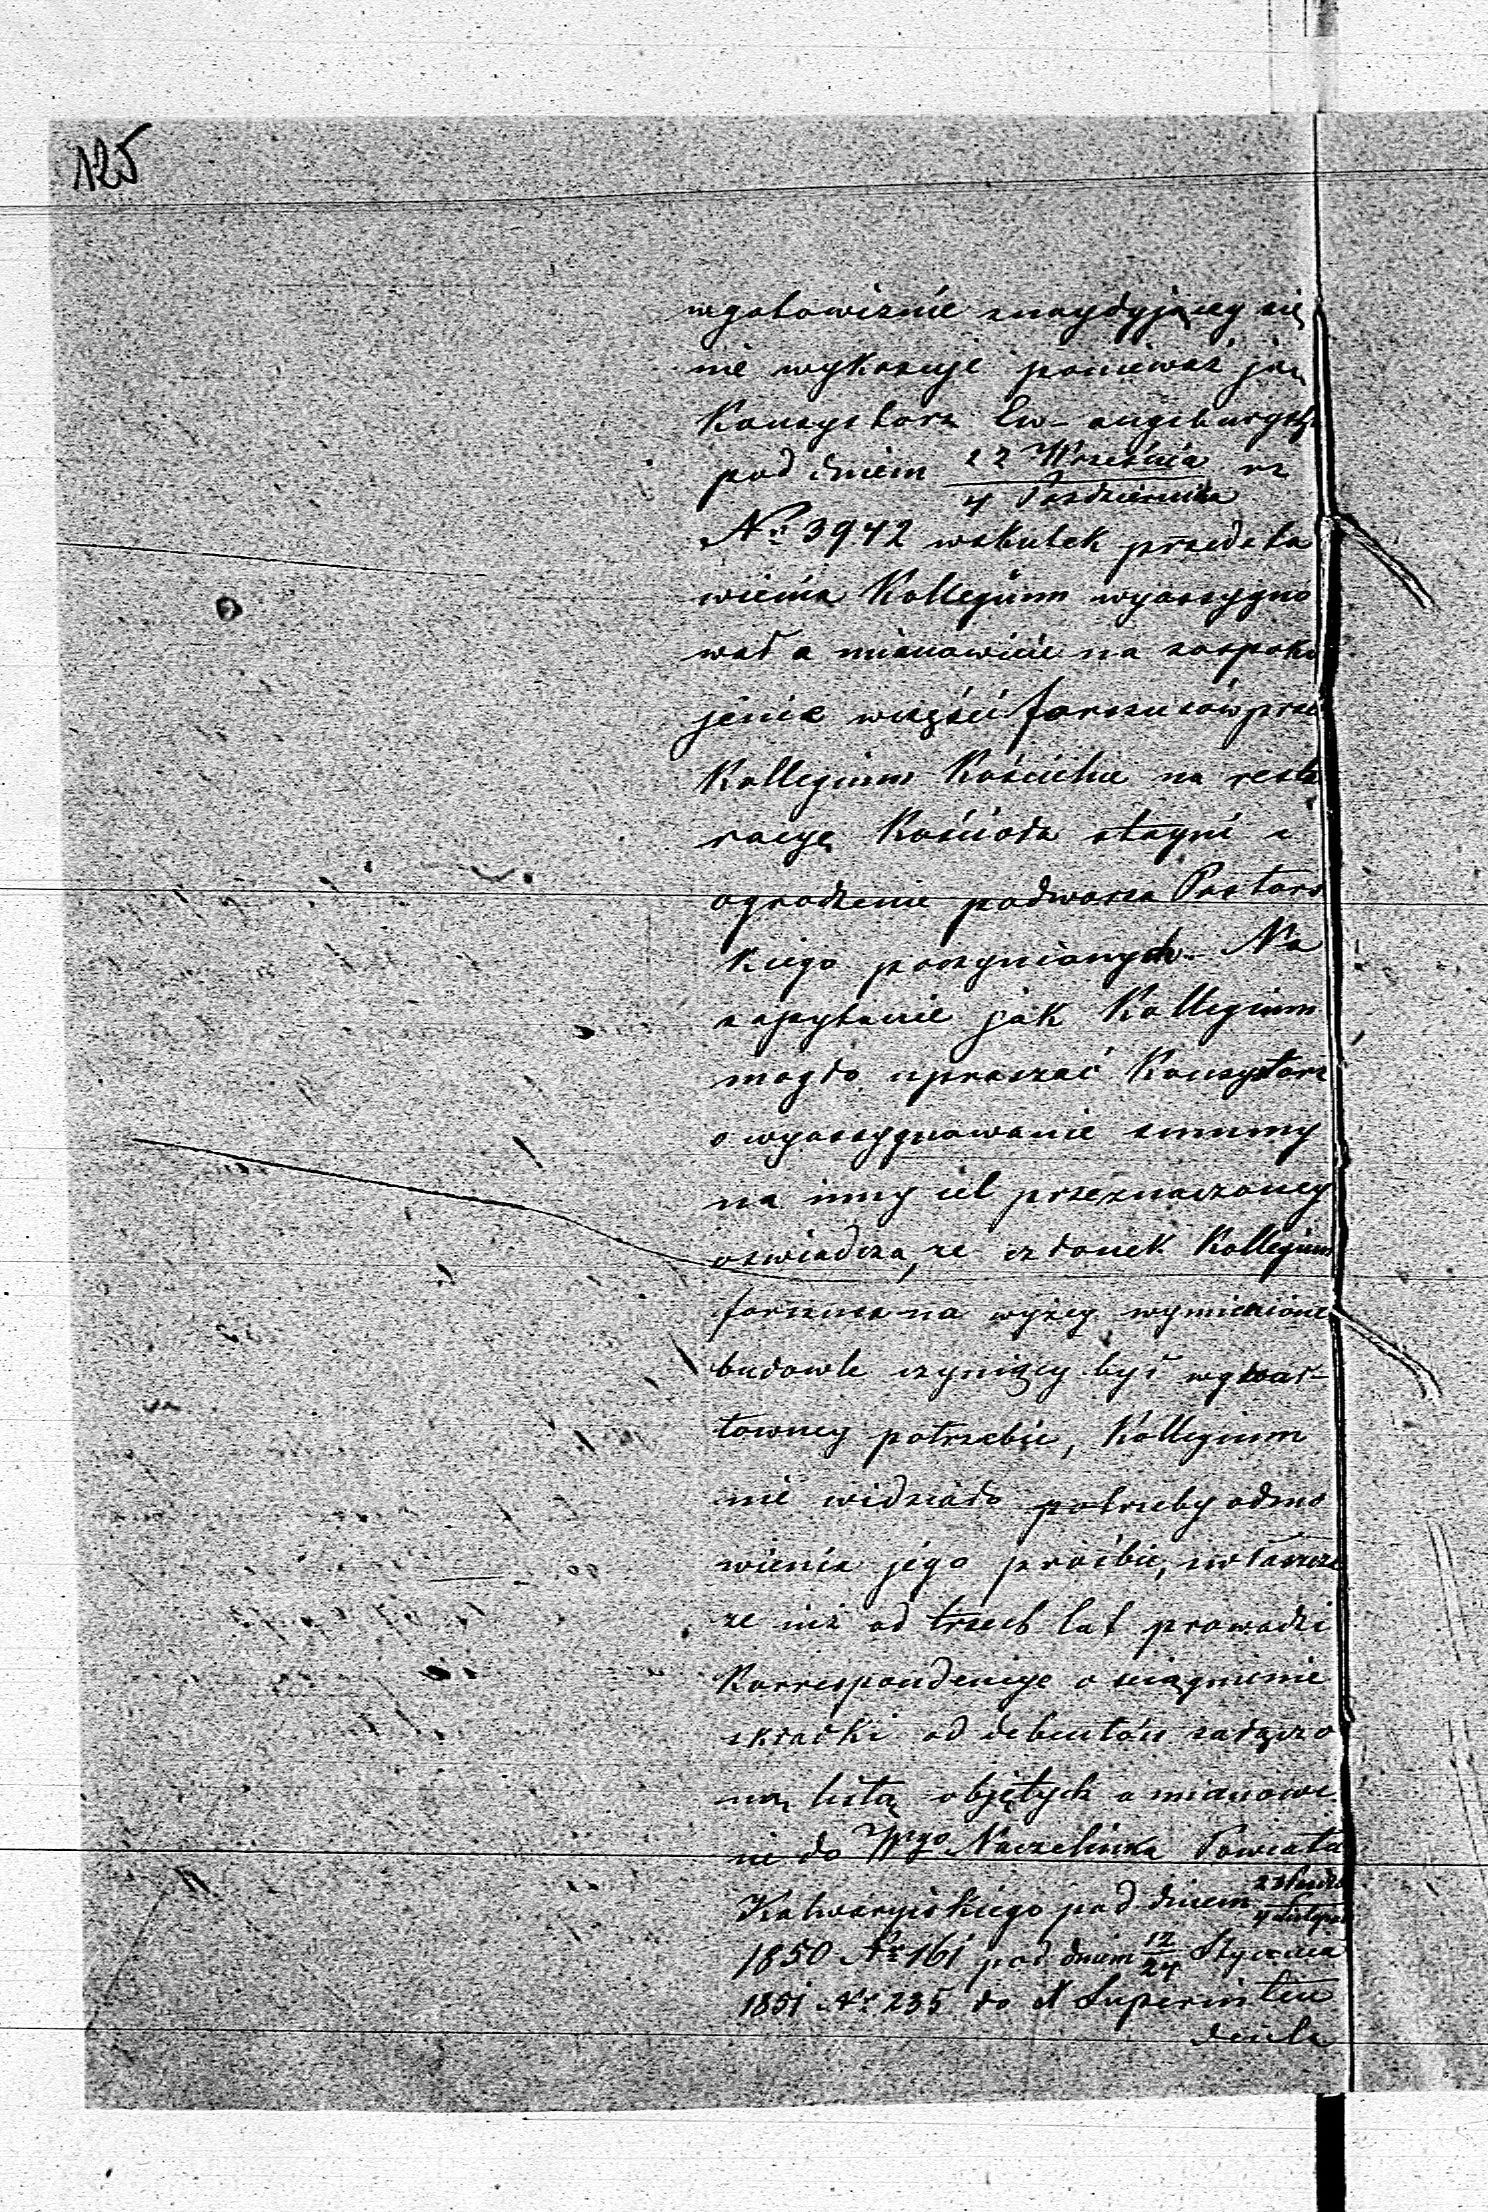 125
w gotowiznie znaydyjącey się
nie wykazuje ponieważ ją
Konsystorz Ew- augsburgski
pod dniem 22 Września / 4 Pazdziernika rz
№ 3942 wskutek przedsta
wienia Kollegium wyassygno
wał a mianowicie na zaspoko
jenie części forszusów prze
Kollegium Kościelne na resta
racyę Kościoła stayni i
ogrodzenie podworza Pastors
kiego poczynionych. Na
zapytanie jak Kollegium
mogło upraszać Konsystorz
o wyassygnowanie summy
na inny cel przeznaczoney
oswiadcza, ze członek Kollegium
forszusa na wyżey wymienione
budowle czyniący był w gwał-
towney potrzebie, Kollegium
nie widziało potrzeby odmo
wienia jego prośbie, zwłaszcza
ze już od trzech lat prowadzi
Korrespondencye o sciągnienie
składki od debentów załączo
ną listą objętych a mianowi
cie do Wgo Naczelnika Powiatu
Kalwaryiskiego pod dniem 23 / 4
1850 № 161 pod dniem 12/24 Stycznia
1851 № 235 do N Superinten
denta